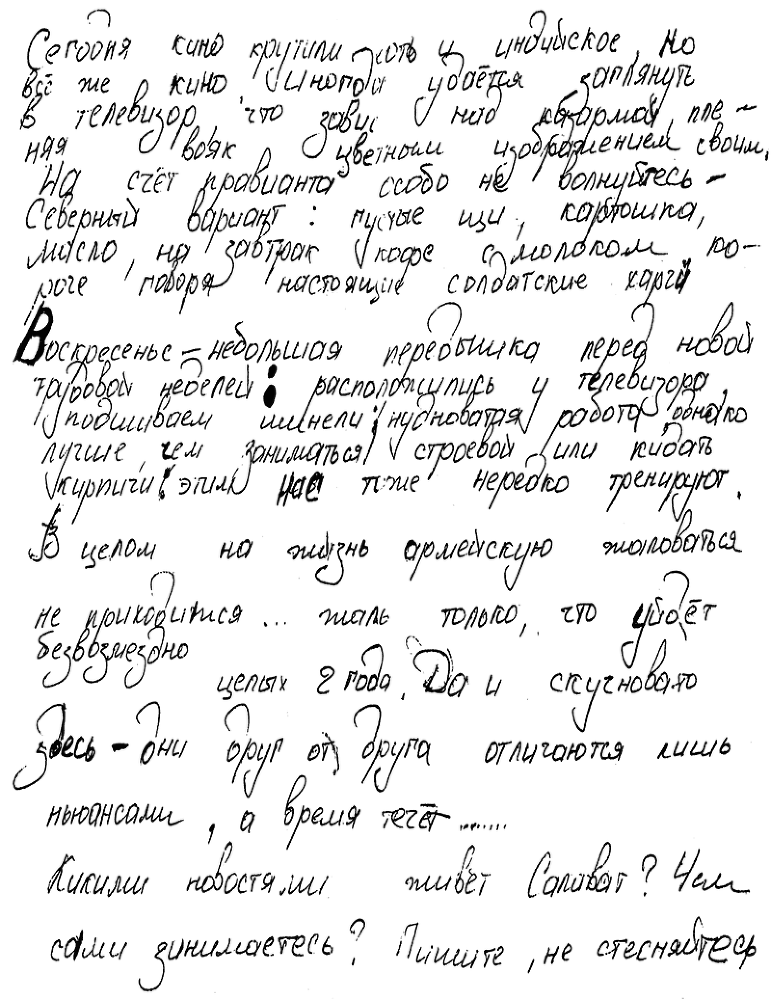 Сегодня кино крутили хоть и индийское, но
всё же кино. Иногда удаётся заглянуть
в телевизор, что завис над казармой, пле-
няя вояк цветным изображением своим.
На счёт правианта особо не волнуйтесь -
Северный вариант: пустые щи, картошка,
масло, на завтрак кофе с молоком, ко-
роче говоря настоящие солдатские харчи
Воскресенье - небольшая передышка перед новой
трудовой неделей: расположились у телевизора,
подшиваем шинели; нудноватая работа, однако
лучше, чем заниматься строевой или кидать
кирпичи: этим нас тоже нередко тренируют.
В целом на жизнь армейскую жаловаться
не приходится... жаль только, что уйдёт
безвозмездно
целых 2 года. Да и скучновато
здесь - дни друг от друга отличаются лишь
ньюансами, а время течёт.......
Какими новостями живёт Салават? Чем
сами занимаетесь? Пишите, не стесняйтесь